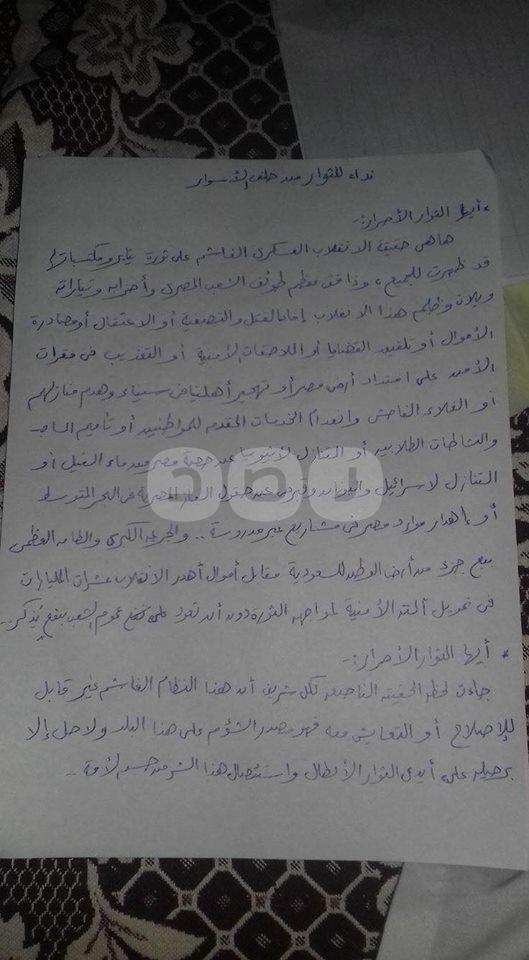 نداء للثوار من خلف الأسوار
* أيها الثوار الأحرار:-
هاهى حقيقة الانقلاب العسكرى الغاشم على ثورة يناير ومكتسباتها
قد ظهرت للجميع، وذاقت معظم طوائف الشعب المصرى وأحزابه وتياراته
ويلات وظلم هذا الانقلاب إما بالقتل والتصفية أو الاعتقال أو مصادرة
الأموال أو تلفيق القضايا أو الملاحقات الأمنية أو التعذيب فى مقرات
الأمن على امتداد أرض مصر أو تهجير أهلينا فى سيناء وهدم منازلهم
أو الغلاء الفاحش وانعدام الخدمات المقدمه للمواطنين أو تأميم المساجد
والنشاطات الطلابيه أو التنازل لأثيوبيا عن حصة مصر من ماء النيل أو
التنازل لاسرائيل واليونان وقبرص عن حقول الغاز المصرية فى البحر المتوسط
أو باهدار موارد مصر فى مشاريع غير مدروسة .. والجريمة الكبرى والطامه العظمى
بيع جزء من أرض الوطن للسعودية مقابل أموال أهدر الانقلاب عشرات المليارات
فى تمويل ألته الأمنية لمواجهه الثورة دون أن تعود على عموم الشعب بنفع يُذكر..
* أيها الثوار الأحرار:-
جاءت لحظه الحقيقه الناصعه لكل شريف أن هذا النظام الغاشم غير قابل
للإصلاح أو التعايش معه فهو مصدر الشؤم على هذا البلد ولا حل إلا
برحيله على أيدى الثوار الأبطال واستئصال هذا الشر من جسد الأمة ..